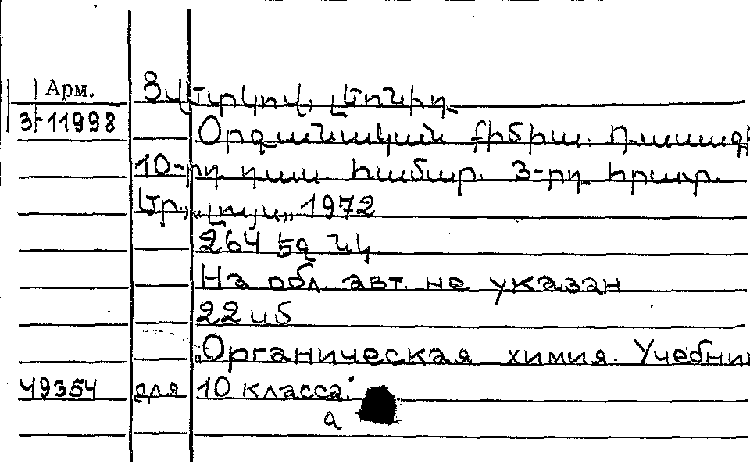 Арм. Ցվետկով, Լեոնիդ
3-11998 Օրգանական քիմիա. Դասագ
10-րդ դաս. համար. 3-րդ հրատ.
Եր., „Լույս„, 1972
264 էջ նկ
На обл. авт. не указан
22 սմ
„Органическая химия. Учебни
49354 для 10 класса"
а